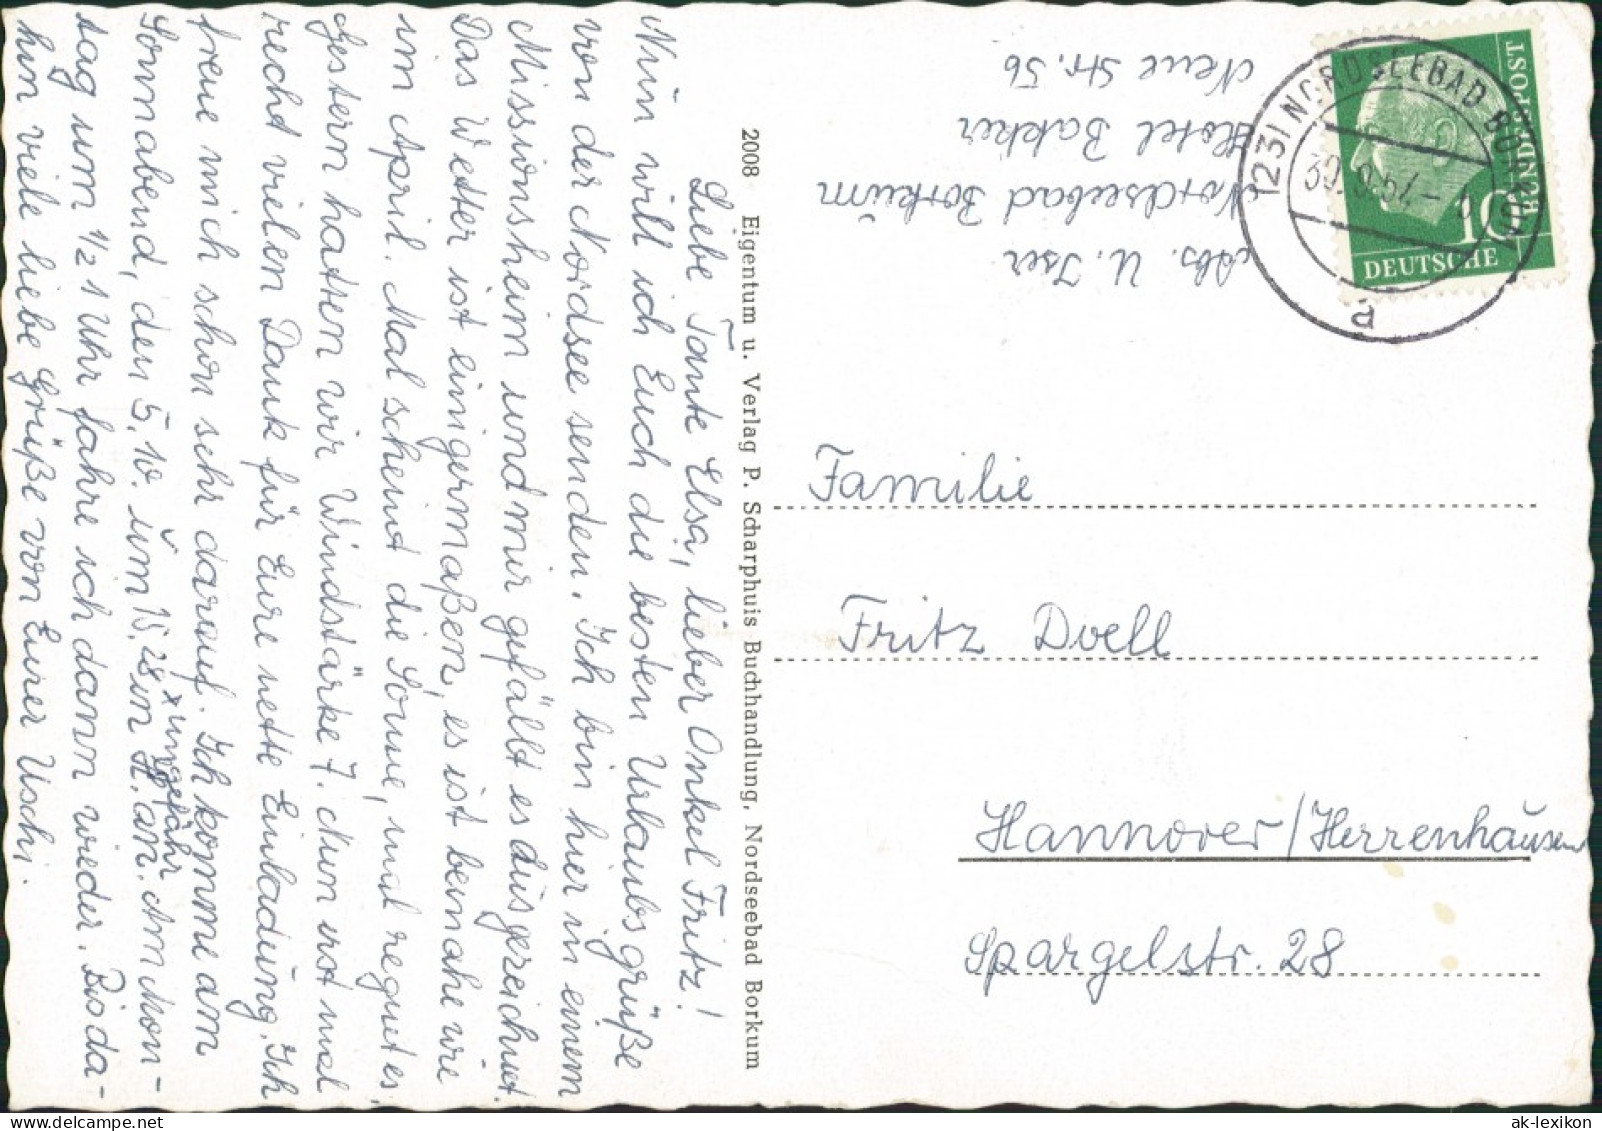 Liebe Tante Elsa, lieber Onkel Fritz!
Nun will ich Euch die besten Urlaubsgrüße
von der Nordsee senden. Ich bin hier in einem
Missionsheim und mir gefällt es ausgezeichnet.
Das Wetter ist einigermaßen, es ist beinahe wie
im April. Mal scheint die Sonne, mal regnet es,
gestern hatten wir Windstärke 7. Nun erst mal
recht vielen Dank für Eure nette Einladung. Ich
freue mich schon sehr darauf. Ich komme am
Sonnabend, den 5.10. um 15.28 in H. an. Am Mon-
x ungefähr
tag um 1/2 1 Uhr fahre ich dann wieder. Bis da-
hin viele liebe Grüße von Eurer Uschi.
2008 Eigentum u. Verlag P. Scharphuis Buchhandlung, Nordseebad Borkum
Abs. U. Iser
Nordseebad Borkum
Hotel Bakker
Neue Str. 56
(23) NORDSEEBAD BORKUM
30.9.57
a
DEUTSCHE
BUNDESPOST
10
Familie
Fritz Doell
Hannover/Herrenhausen
Spargelstr. 28
ak-lexikon